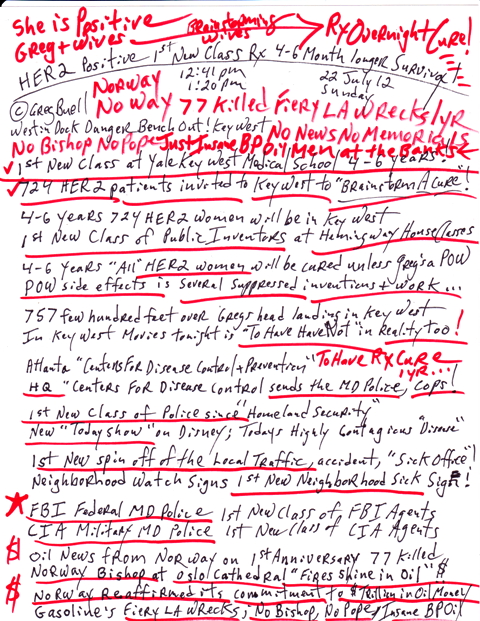 She is Positive
Greg + wives
Brainstorming
wives
Rx Overnight Cure!
HER2 Positive 1st New Class Rx 4-6 Month longer Survival
12:41 pm
1:20 pm
22 July 12
Sunday
Norway
© Greg Buell
No way 77 Killed Fiery LA Wrecks/yr
Westin Dock Danger Bench Out! Key West
No News No Memorials
No Bishop No Pope Just Insane BP Oil Men at the Banks
1st New Class at Yale Key West Medical School 4-6 years!
724 HER2 patients invited to Key West to "Brainstorm A Cure!
4-6 years 724 HER2 women will be in Key West
1st New Class of Public Inventors at Hemingway House Classes
4-6 years "All" HER2 women will be cured unless Greg's a POW
POW side effects is several suppressed inventions + work...
757 few hundred feet over Gregs head landing in Key West
In Key West Movies tonight is "To Have Have Not" in Reality too!
Atlanta "Centers For Disease Control + Prevention"
To Have Rx Cure
1yr...
HQ "Centers For Disease Control sends the MD Police, Cops!
1st New Class of Police since "Homeland Security"
New "Today show" on Disney; Todays Highly Contagious "Disease"
1st New spin off of the Local Traffic, accident, "Sick Office"!
Neighborhood Watch Signs 1st New Neighborhood Sick Sign!
FBI Federal MD Police 1st New Class of FBI Agents
CIA Military MD Police 1st New Class of CIA Agents
$ Oil News from Norway on 1st Anniversary 77 Killed
Norway Bishop at Oslo Cathedral "Fires Shine in Oil" $
$ Norway Reaffirmed its commitment to $1 Trillion in Oil Money
Gasoline's Fiery LA Wrecks; No Bishop, No Pope, Insane BP Oil